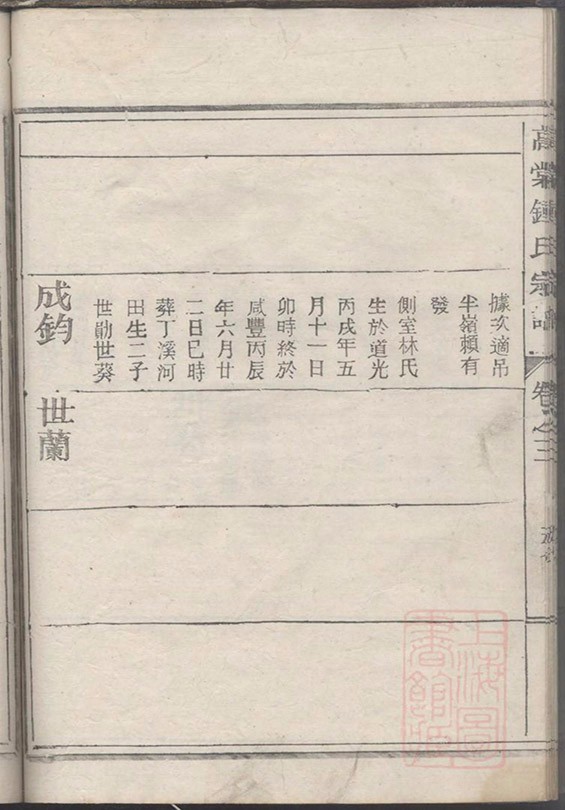 鍾氏宗譜
卷之三
據次適吊
半嶺賴有
發
側室林氏
生於道光
丙戌年五
月十一日
卯時終於
咸豐丙辰
年六月廿
二日巳時
葬丁溪河
田生二子
世勛世葵
成鈞 世蘭
上海圖
書館藏